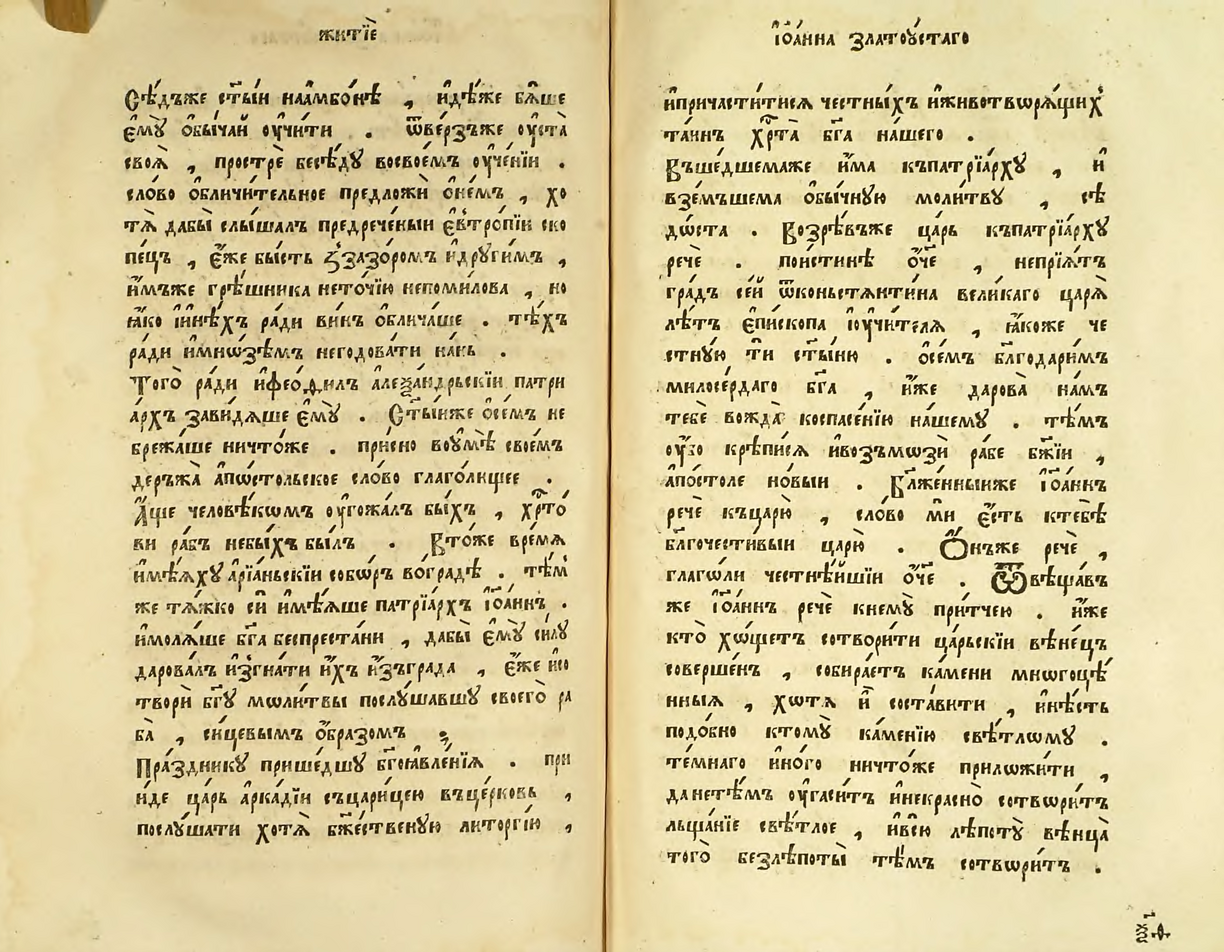 житїѐ
Сѣ́дъже ст҃ы́и наамбо́нѣ , идѣ́же бѧ́ше
є҆мꙋ̀ ѻ҆бы́чай ᲂу҆чи́ти . ѿве́рзъже ᲂу҆ста̀
своѧ̀ , прострѐ бесѣ́дꙋ восвое́мъ ᲂу҆че́нїи .
сло́во ѻ҆бличи́тельное предложѝ ѻ҆не́мъ , хо
тѧ̀ дабы̀ слы́шалъ предрече́ныи є҆ѵтро́пїи ско
пе́цъ , є҆́же бы́сть ѕ̾зазо́ромъ и҆дрꙋги́мъ ,
и҆́мъже грѣ́шника нето́чїю непоми́лова , но
ꙗ҆́ко и҆и҆нѣ́хъ ра́ди ви́нъ ѻ҆блича́ше . тѣ́хъ
ра́ди и҆мнѡ́зѣмъ негодова́ти на́нь .
Того̀ ра́ди и҆ѳео́филъ а҆леѯа́ндрьскїи патри
а́рхъ зави́дѧше є҆мꙋ̀ . Ст҃ы́иже ѻ҆се́мъ не
брежа́ше ничто́же . при́сно воᲂу҆мѣ̀ свое́мъ
держа̀ а҆пѡ́стольское сло́во глаго́лющее .
А҆́ще человѣ́кѡмъ ᲂу҆гожа́лъ бы́хъ , хрⷭ҇то́
ви ра́бъ небы́хъ бы́лъ . Вто́же вре́мѧ
и҆мѣ́ѧхꙋ а҆рїа́ньскїи собо́ръ вогра́дѣ . тѣ́м
же тѧ́жко сѝ и҆мѣ́ѧше патрїа́рхъ і҆ѡа́ннъ .
и҆молѧ́ше бг҃а беспреста́ни , дабы̀ є҆мꙋ̀ си́лꙋ
дарова́лъ и҆згна́ти и҆́хъ и҆зъгра́да , є҆́же исо
творѝ бг҃ꙋ мѡли́твы послꙋ́шавшꙋ своего̀ ра
ба̀ , си́цевымъ ѻ҆́бразомъ
Пра́здникꙋ прише́дшꙋ бг҃оꙗвле́нїѧ . при
и́де ца́рь а҆рка́дїи съцари́цею въце́рковь ,
послꙋ́шати хотѧ̀ бж҃е́ственꙋю литорги́ю ,
і҆ѡа́нна златоꙋ́стаго
и҆причасти́тисѧ честны́хъ и҆животворѧ́щих
та́инъ хрⷭ҇та̀ бг҃а на́шего .
Въше́дшемаже и҆́ма къпатрїа́рхꙋ , и҆
взе́мъшема ѻ҆бы́чнꙋю моли́твꙋ , сѣ
до́ста . Возрѣ́въже ца́рь къпатрїа́рхꙋ
речѐ . пои́стинѣ ѻ҆́ч҃е , непрїѧ́тъ
гра́дъ се́й ѿконьстѧнти́на вели́каго царѧ̀
лѣ́тъ є҆пи́скопа і҆ᲂу҆чи́телѧ , ꙗ҆́коже че
стнꙋ́ю тѝ ст҃ы́ню . ѻ҆се́мъ бл҃годари́мъ
милосе́рдаго бг҃а , и҆́же дарова̀ на́мъ
тебѐ вожда̀ коспасе́нїю на́шемꙋ . тѣ́мъ
ᲂу҆́бо крѣ́писѧ и҆возъмѡзѝ ра́бе бж҃їи ,
а҆по́столе но́выи . Бл҃же́нныиже і҆ѡа́ннъ
речѐ къцарю̀ , сло́во мѝ є҆́сть ктебѣ̀
бл҃гочести́выи царю̀ . Ѻ҆́нъже речѐ ,
глаго́ли честнѣ́йшїи ѻ҆́ч҃е . Ѿвѣща́въ
же і҆ѡа́ннъ речѐ кнемꙋ̀ при́тчею . и҆́же
кто̀ хо́щетъ сотвори́ти ца́рьскїи вѣне́цъ
соверше́нъ , собира́етъ ка́мени мнѡгоцѣ́
нныѧ , хотѧ̀ и҆̀ соста́вити , и҆нѣ́сть
подо́бно ктомꙋ̀ ка́менїю свѣ́тломꙋ .
те́мнаго и҆но́го ничто́же приложи́ти ,
данетѣ́мъ ᲂу҆гаси́тъ и҆некрасно̀ сотвори́тъ
льща́нїе свѣ́тлое , и҆всю̀ лѣ́потꙋ вѣнца̀
того̀ безлѣ́поты тѣ́мъ сотвори́тъ .